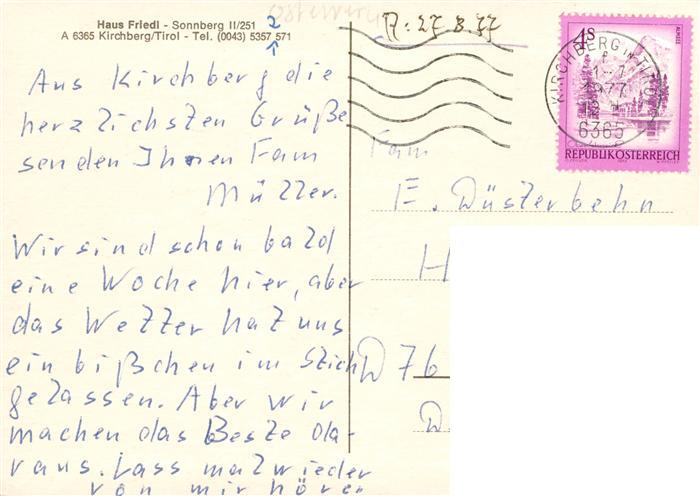 Haus Friedl - Sonnberg II/251
A 6365 Kirchberg/Tirol - Tel. (0043) 5357 571
2
Aus Kirchberg die
herzlichsten Grüße
senden Ihnen Fam
Müller.
Wir sind schon bald
eine Woche hier, aber
das Wetter hat uns
ein bißchen im Stich
gelassen. Aber wir
machen das Beste da-
raus. Lass mal wieder
von mir hören
A: 27.8.77
4S
ALMSEE
REPUBLIK ÖSTERREICH
KIRCHBERG IN TIROL
1977
6365
Fam
E. Düsterbehn
H
D 76